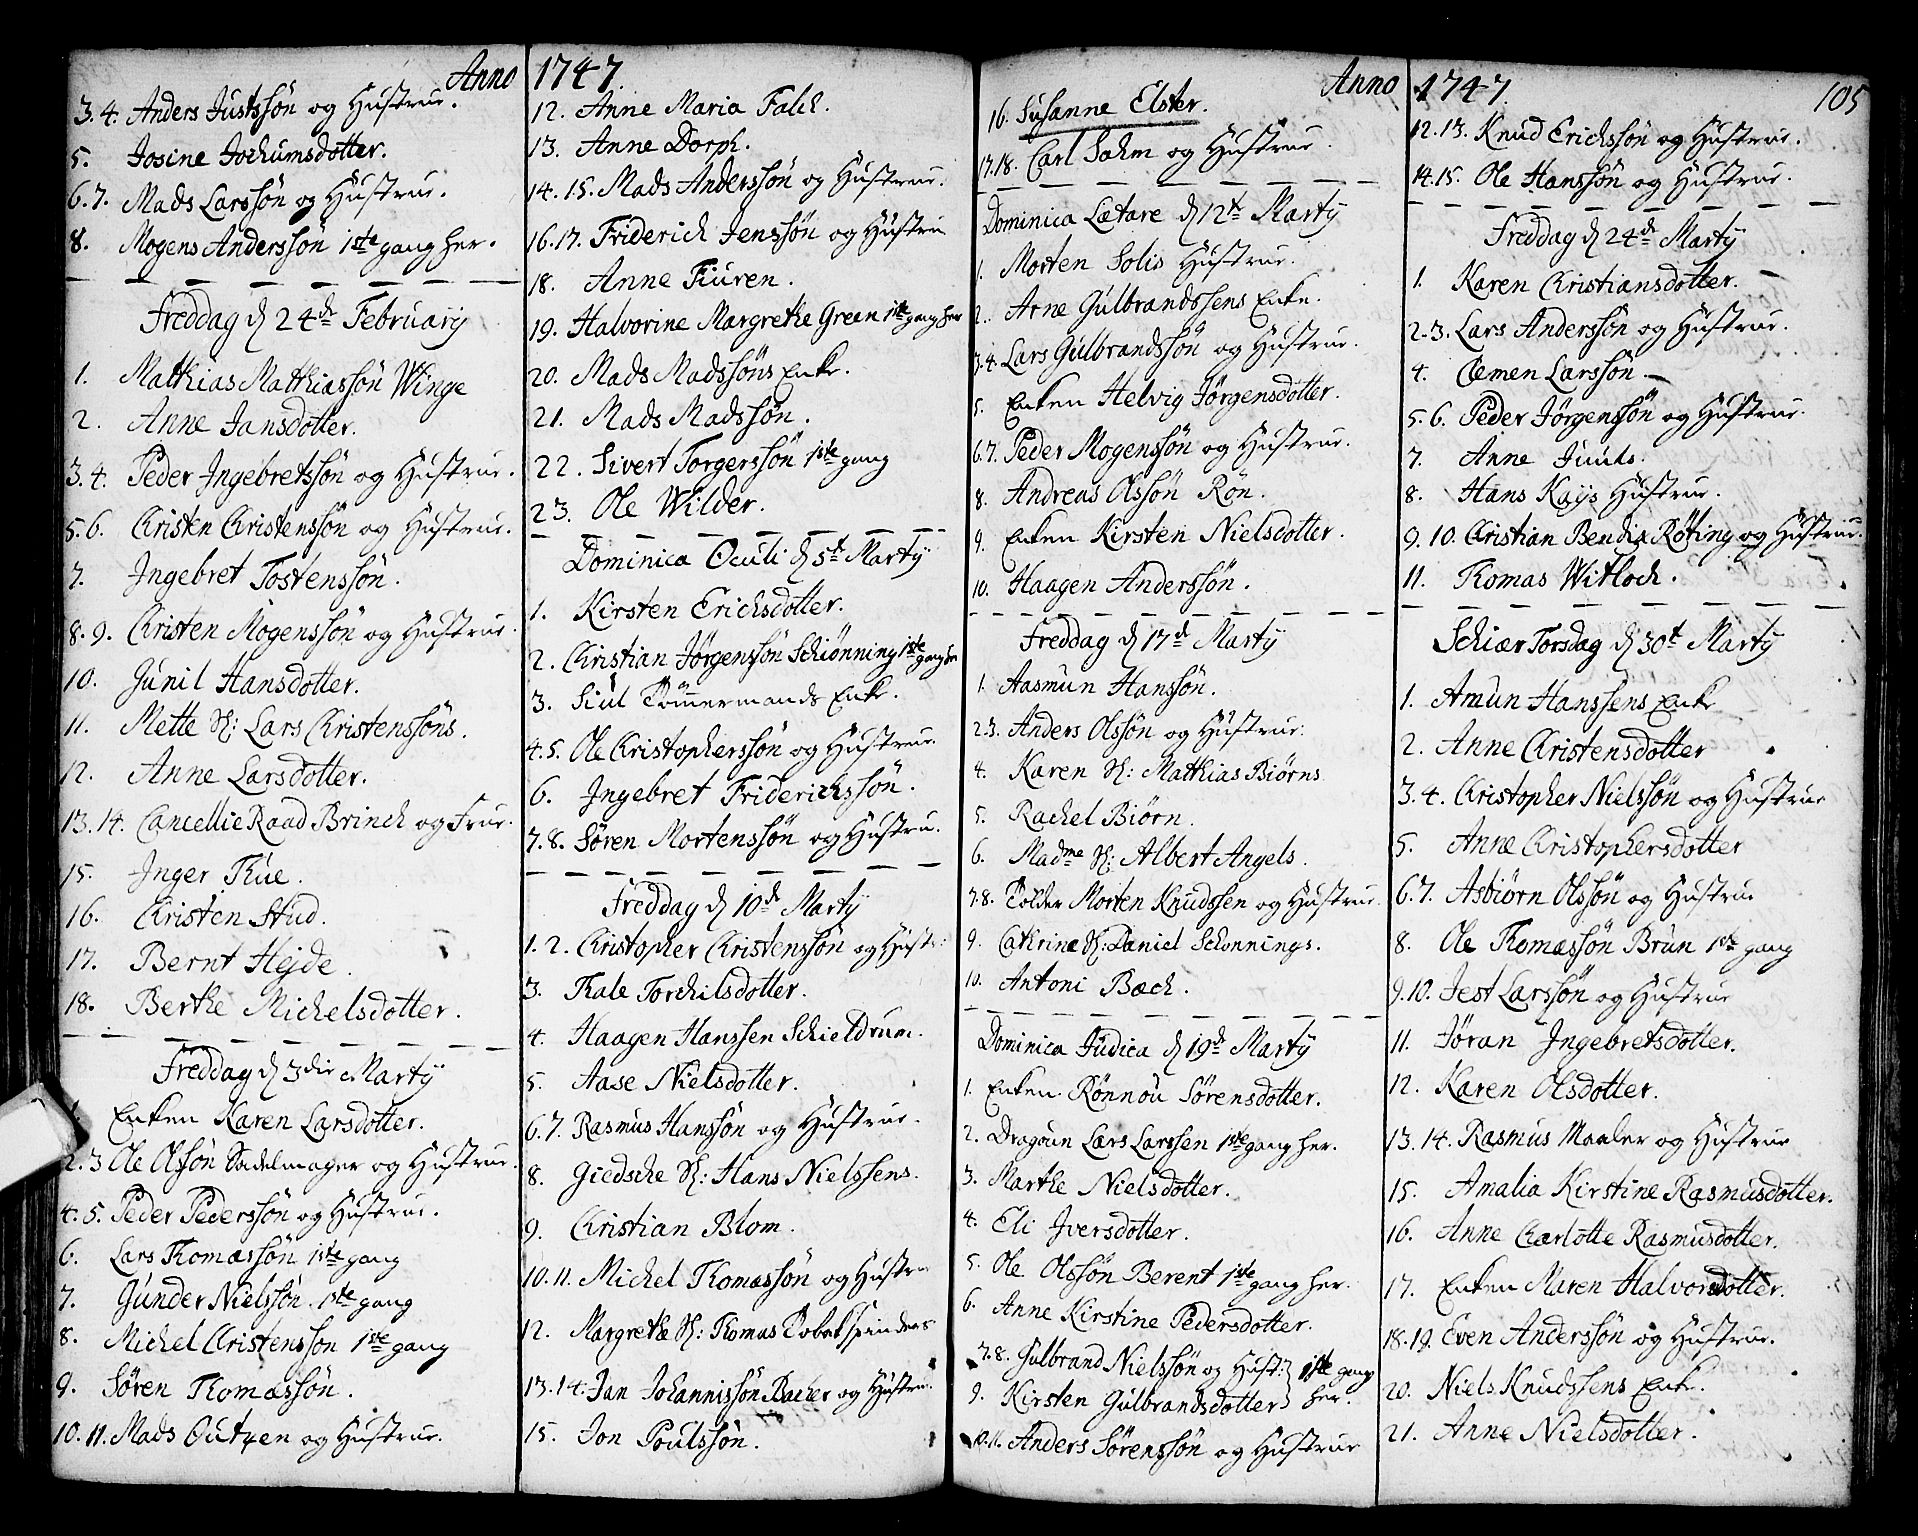 Anno 1747.
3.4. Anders Justssøn og Hustrue.
5. Josine Jochumsdotter.
6.7. Mads Larssøn og Hustrue.
8. Mogens Anderssøn 1ste gang her.
Freddag d 24de February
1. Mathias Mathiassøn Winge
2. Anne Jansdotter.
3.4. Peder Ingebretsøn og Hustrue.
5.6. Christen Christenssøn og Hustrue.
7. Ingebret Tostenssøn.
8.9. Christen Mogenssøn og Hustrue.
10. Gunil Hansdotter.
11. Mette Sl: Lars Christenssøns.
12. Anne Larsdotter.
13.14. Cancellie Raad Brinch og Frue.
15. Inger Thue.
16. Christen Stud.
17. Bernt Hejde.
18. Berthe Michelsdotter.
Freddag d 3die Marty
1. Enken Karen Larsdotter.
2.3 Ole Olssøn Sadelmager og Hustrue.
4.5. Peder Pederssøn og Hustrue.
6. Lars Thomassøn 1ste gang
7. Gunder Nielssøn. 1ste gang
8. Michel Christenssøn 1ste gang
9. Søren Thomassøn.
10.11. Mads Outzen og Hustrue.
12. Anne Maria Falch.
13. Anne Dorph.
14.15. Mads Anderssøn og Hustrue.
16.17. Friderich Jenssøn og Hustru
18. Anne Fiuren.
19. Halvorine Margrethe Green 1ste gang her
20. Mads Madssøns Enke.
21. Mads Madssøn.
22. Sivert Torgerssøn 1ste gang
23. Ole Wilder.
Dominica Oculi d 5te Marty
1. Kirsten Erichsdotter.
2. Christian Jørgenssøn Schiønning 1ste gang her
3. Siul Tømmermands Enke.
4.5. Ole Christopherssøn og Hustrue.
6. Ingebret Fridrichssøn.
7.8. Søren Mortenssøn og Hustru.
Freddag d 10de Marty
1.2. Christopher Christenssøn og Hustr:
3. Thale Torchilsdotter.
4. Haagen Hanssen Schieldrum.
5. Aase Nielsdotter.
6.7. Rasmus Hanssøn og Hustrue.
8. Giedsche Sl: Hans Nielssens.
9. Christian Blom.
10.11. Michel Thomassøn og Hustru
12. Margrethe Sl: Thomas Tobakspinders
13.14. Jan Johannissøn Backer og Hustru.
15. Jon Poulssøn.
Anno 1747. 105
16. Susanne Elster.
17.18. Carl Sahm og Hustrue.
Dominica Lætare d 12te Marty
1. Morten Solis Hustrue.
2. Arne Gulbrandssens Enke.
3.4. Lars Gulbrandssøn og Hustrue.
5. Enken Helvig Jørgensdotter.
6.7. Peder Mogenssøn og Hustrue.
8. Andreas Olssøn Røn.
9. Enken Kirsten Nielsdotter.
10. Haagen Anderssøn.
Freddag d 17de Marty
1. Aasmun Hanssøn.
2.3. Anders Olssøn og Hustrue.
4. Karen Sl: Mathias Biørns.
5. Rachel Biørn.
6. Madme Sl: Albert Angels.
7.8. Tolder Morten Knudssen og Hustrue.
9. Cathrine Sl: Daniel Schonnings.
10. Antoni Bæch.
Dominica Judica d 19de Marty
1. Enken Rønnou Sørensdotter.
2. Dragoun Lars Larssen 1ste gang her.
3. Marthe Nielsdotter.
4. Eli Iversdotter.
5. Ole Olssøn Berent 1ste gang her.
6. Anne Kirstine Pedersdotter.
7.8. Gulbrand Nielssøn og Hust: } 1ste gang
9. Kirsten Gulbrandsdotter } her.
10.11. Anders Sørenssøn og Hustrue
12.13. Knud Erichssøn og Hustrue.
14.15. Ole Hanssøn og Hustrue.
Freddag d 24de Marty
1. Karen Christiansdotter.
2.3. Lars Anderssøn og Hustrue.
4. Clemen Larssøn.
5.6. Peder Jørgenssøn og Hustrue.
7. Anne Juuls.
8. Hans Kays Hustrue.
9.10. Christian Bendix Røting og Hustrue.
11. Thomas Witloch.
Schiær Torsdag d 30te Marty
1. Amun Hanssens Enke
2. Anne Christensdotter
3.4. Christopher Nielssøn og Hustrue
5. Anne Christophersdotter
6.7. Asbiørn Olssøn og Hustrue
8. Ole Thomassøn Brun 1ste gang
9.10. Jest Larssøn og Hustrue
11. Jøran Ingebretsdotter.
12. Karen Olsdotter.
13.14. Rasmus Maaler og Hustrue
15. Amalia Kirstine Rasmusdotter.
16. Anne Charlotte Rasmusdotter.
17. Enken Maren Halvorsdotter.
18.19. Even Anderssøn og Hustrue.
20. Niels Knudssens Enke.
21. Anne Nielsdotter.